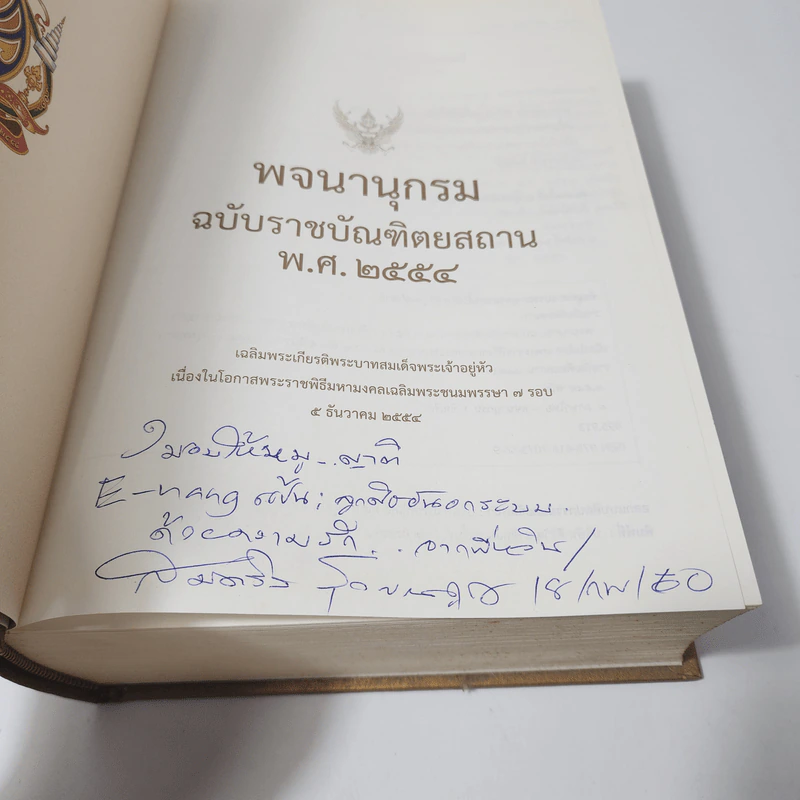 พจนานุกรม
ฉบับราชบัณฑิตยสถาน
พ.ศ. ๒๕๕๔
เฉลิมพระเกียรติพระบาทสมเด็จพระเจ้าอยู่หัว
เนื่องในโอกาสพระราชพิธีมหามงคลเฉลิมพระชนมพรรษา ๗ รอบ
๕ ธันวาคม ๒๕๕๔
มอบให้หมู่..ญาติ
E-nang แป้น; ลูกศิษย์นอกระบบ.
ด้วยความรัก..จาก
18/กพ/60